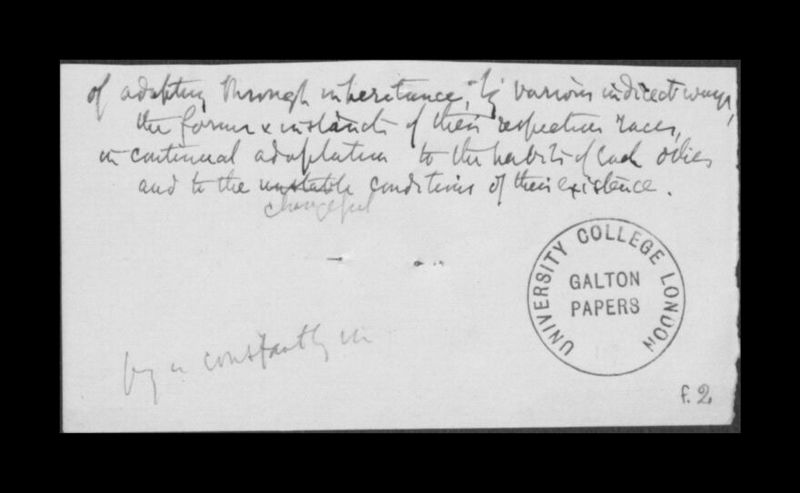 of adapting through inheritance, by various indirect ways,
the forms & instincts of their respective races,
in continual adaptation to the habits of each other
and to the unstable conditions of their existence.
changeful
UNIVERSITY COLLEGE LONDON
GALTON
PAPERS
by a constantly in
f. 2